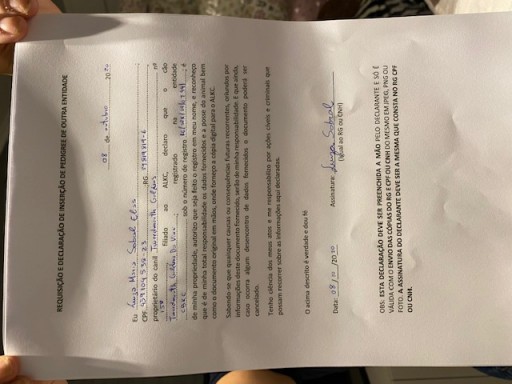 REQUISIÇÃO E DECLARAÇÃO DE INSERÇÃO DE PEDIGREE DE OUTRA ENTIDADE
08 de outubro 20
Eu Sobral
CPF RG
proprietário do canil nº
filiado ao ALKC, declaro que o cão
registrado na entidade
CBKC sob o número de registro é
de minha propriedade, autorizo que seja feito o registro em meu nome, e reconheço
que é de minha total responsabilidade os dados fornecidos e a posse do animal bem
como o documento original em mãos, onde forneço a cópia digital para o ALKC.
Sabendo-se que quaisquer causas ou consequências futuras recorrentes, oriundas por
informações desse documento fornecido, serão de minha responsabilidade. E que ainda,
caso ocorra algum desencontro de dados fornecidos o documento poderá ser
cancelado.
Tenho ciência dos meus atos e me responsabilizo por ações cíveis e criminais que
possam recorrer sobre as informações aqui declaradas.
O acima descrito é verdade e dou fé
Data: 08 / /20 Assinatura: Sobral
(igual ao RG ou CNH)
OBS. ESTA DECLARAÇÃO DEVE SER PREENCHIDA A MÃO PELO DECLARANTE E SÓ É
VÁLIDA COM O ENVIO DAS CÓPIAS DO RG E CPF OU CNH DO MESMO EM JPEG, PNG OU
FOTO. A ASSINATURA DO DECLARANTE DEVE SER A MESMA QUE CONSTA NO RG CPF
OU CNH.